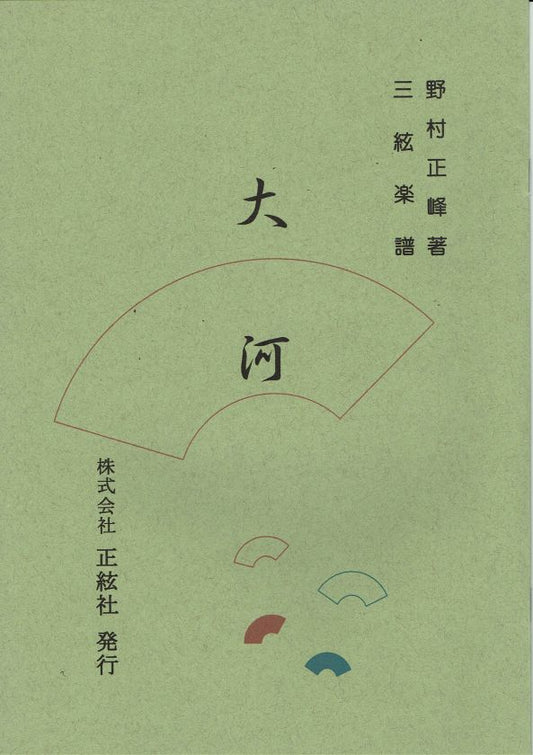 野村正峰著
三絃楽譜
大河
株式会社 正絃社 発行